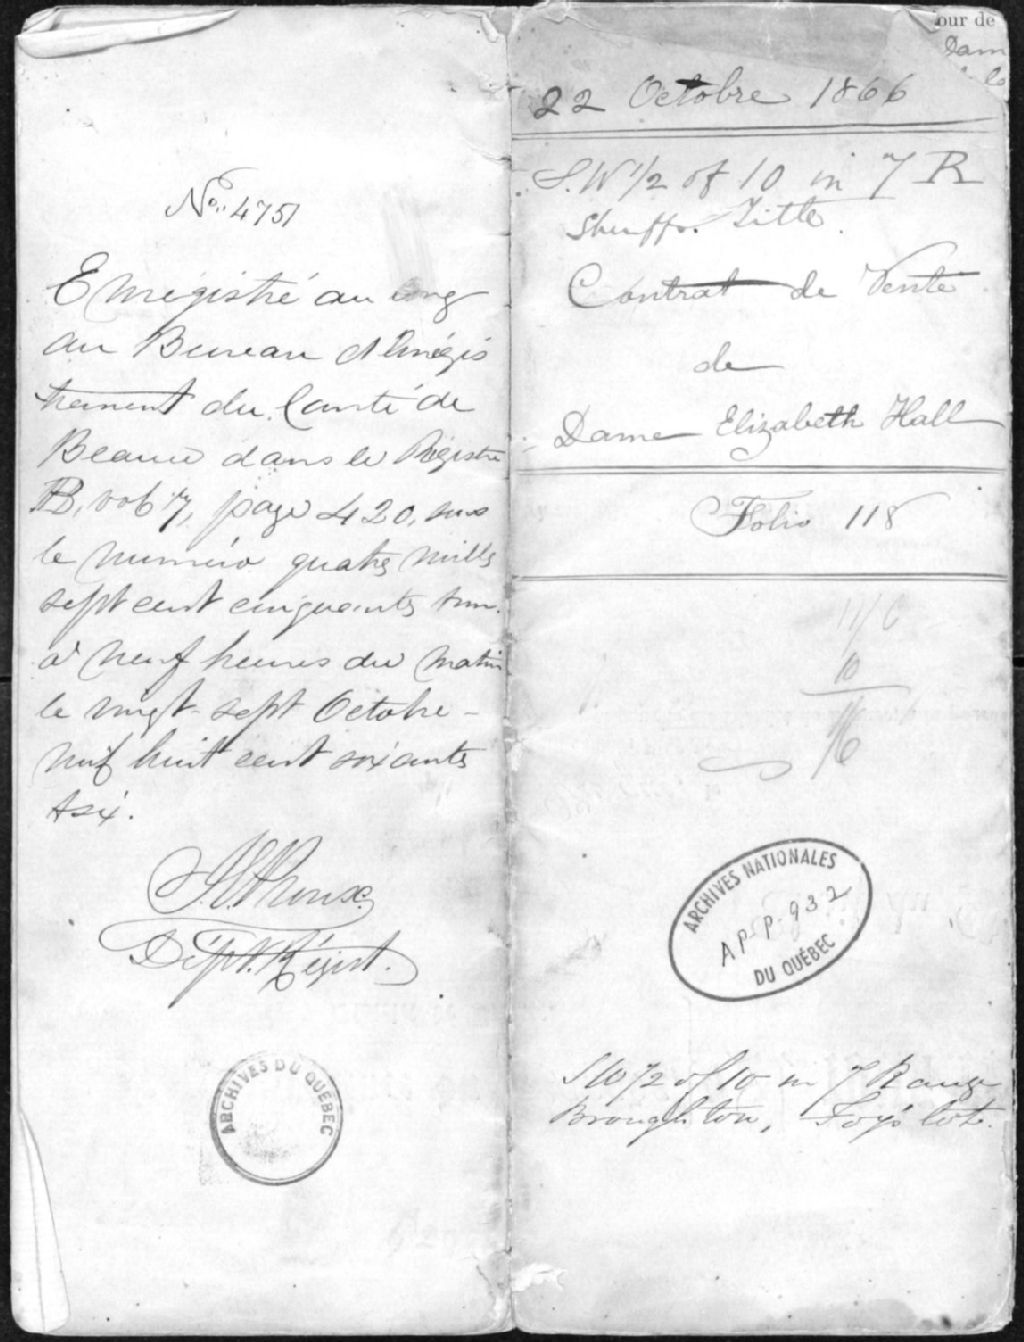 No. 4751
Enregistré au long
au Bureau d'Enrégis
trement du Comté de
Beauce dans le Régistre
B, vol 7, page 420, sous
le numéro quatre mille
sept cent cinquante & un
à neuf heures du matin
le vingt-sept Octobre -
huit cent soixante
& six.
Roux
Dépt. Régist.
ARCHIVES DU QUÉBEC
our de
Dam
22 Octobre 1866
S. W 1/2 of 10 in 7 R
Sheriffs. Title.
Contrat de Vente
de
Dame Elizabeth Hall
Folio 118
10
ARCHIVES NATIONALES
AP-P-932
DU QUÉBEC
SW 1/2 of 10 in 7 Range
Broughton, Foy's lot.